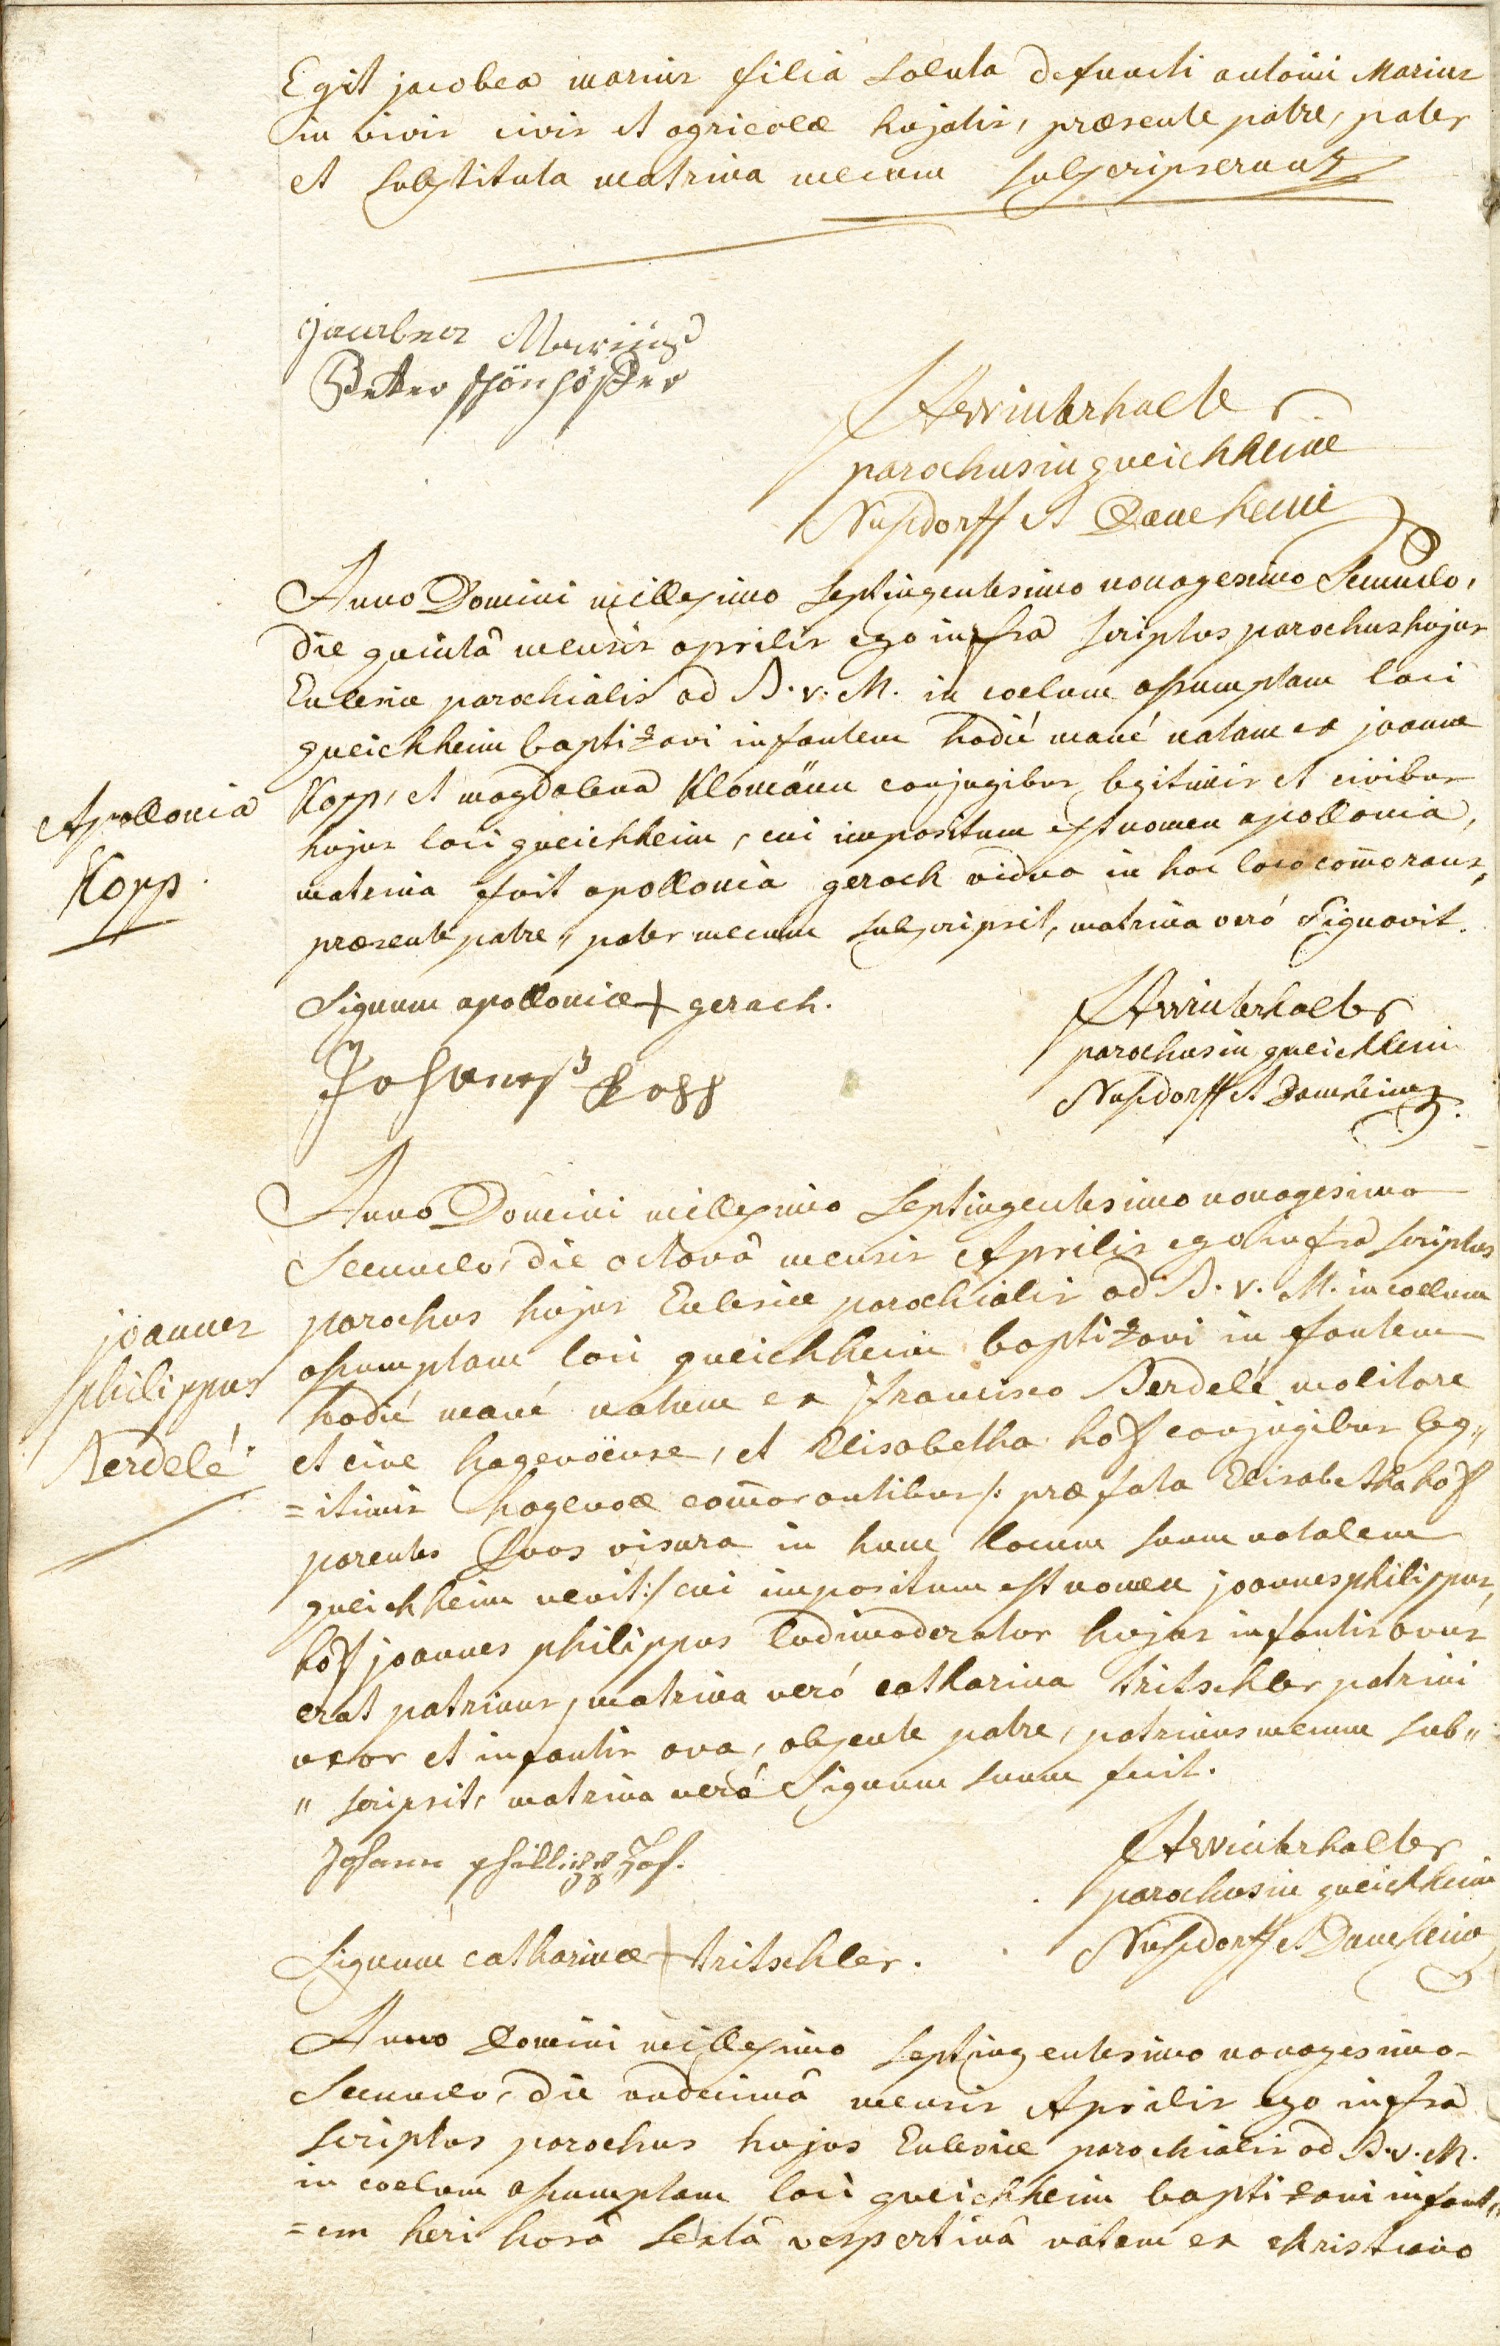 Egit jacobea marius filia Soluta defuncti antonii Marius
in vivis civis et agricolæ hujatis, præsente patre, pater
et substituta matrina mecum subscripserunt
Jacobea Marius
Peter
FAWinterhalter
parochus in queichheim
Nusdorff et Damheim
Anno Domini millesimo septingentesimo nonagesimo Secundo,
die quintâ mensis aprilis ego infra scriptus parochus hujus
Eclesiæ parochialis ad B. v. M. in coelum assumptam loci
queichheim baptizavi infantem hodié mané natam ex joanne
Apollonia
Kopp.
Kopp, et magdalena Klomänn conjugibus legitimis et civibus
hujus loci queichheim, cui impositum est nomen apollonia,
matrina fuit apollonia gerach vidua in hoc loco com̄orans,
præsente patre,, pater mecum subscripsit, matrina veró Signavit.
Signum apolloniæ + gerach.
Johannes Kopp
FAWinterhalter
parochus in queichheim
Nusdorff et Damheim.
Anno Domini millesimo Septingentesimo nonagesimo
Secundo, die octavâ mensis Aprilis ego infra scriptus
parochus hujus Eclesiæ parochialis ad B. v. M. in coelum
assumptam loci queichheim baptizavi infantem
joannes
philippus
Berdelé.
hodié mané natum ex francisco Berdelé molitore
et cive hagenöense, et Elisabetha hoff conjugibus leg,,
=itimis hagenoæ com̄orantibus /: præfata Elisabetha hoff
parentes Suos visura in hunc locum suum natalem
queichheim venit :/ cui impositum est nomen joannes philippus,
hoff joannes philippus ludimoderator hujus infantis avus
erat patrinus, matrina veró catharina tritschler patrini
uxor et infantis ava, absente patre, patrinus mecum sub,,
,, scripsit, matrina veró Signum suum fecit.
Johann phillipp Hof.
FAWinterhalter
parochus in queichheim
Nusdorff et Damheim
Signum catharinæ + tritschler.
Anno Domini millesimo septingentesimo nonagesimo
Secundo, die undecimâ mensis Aprilis ego infra
scriptus parochus hujus Eclesiæ parochialis ad B. v. M.
in coelum assumptam loci queichheim baptizavi infant,,
=em heri horâ sextâ vespertinâ natam ex christiano